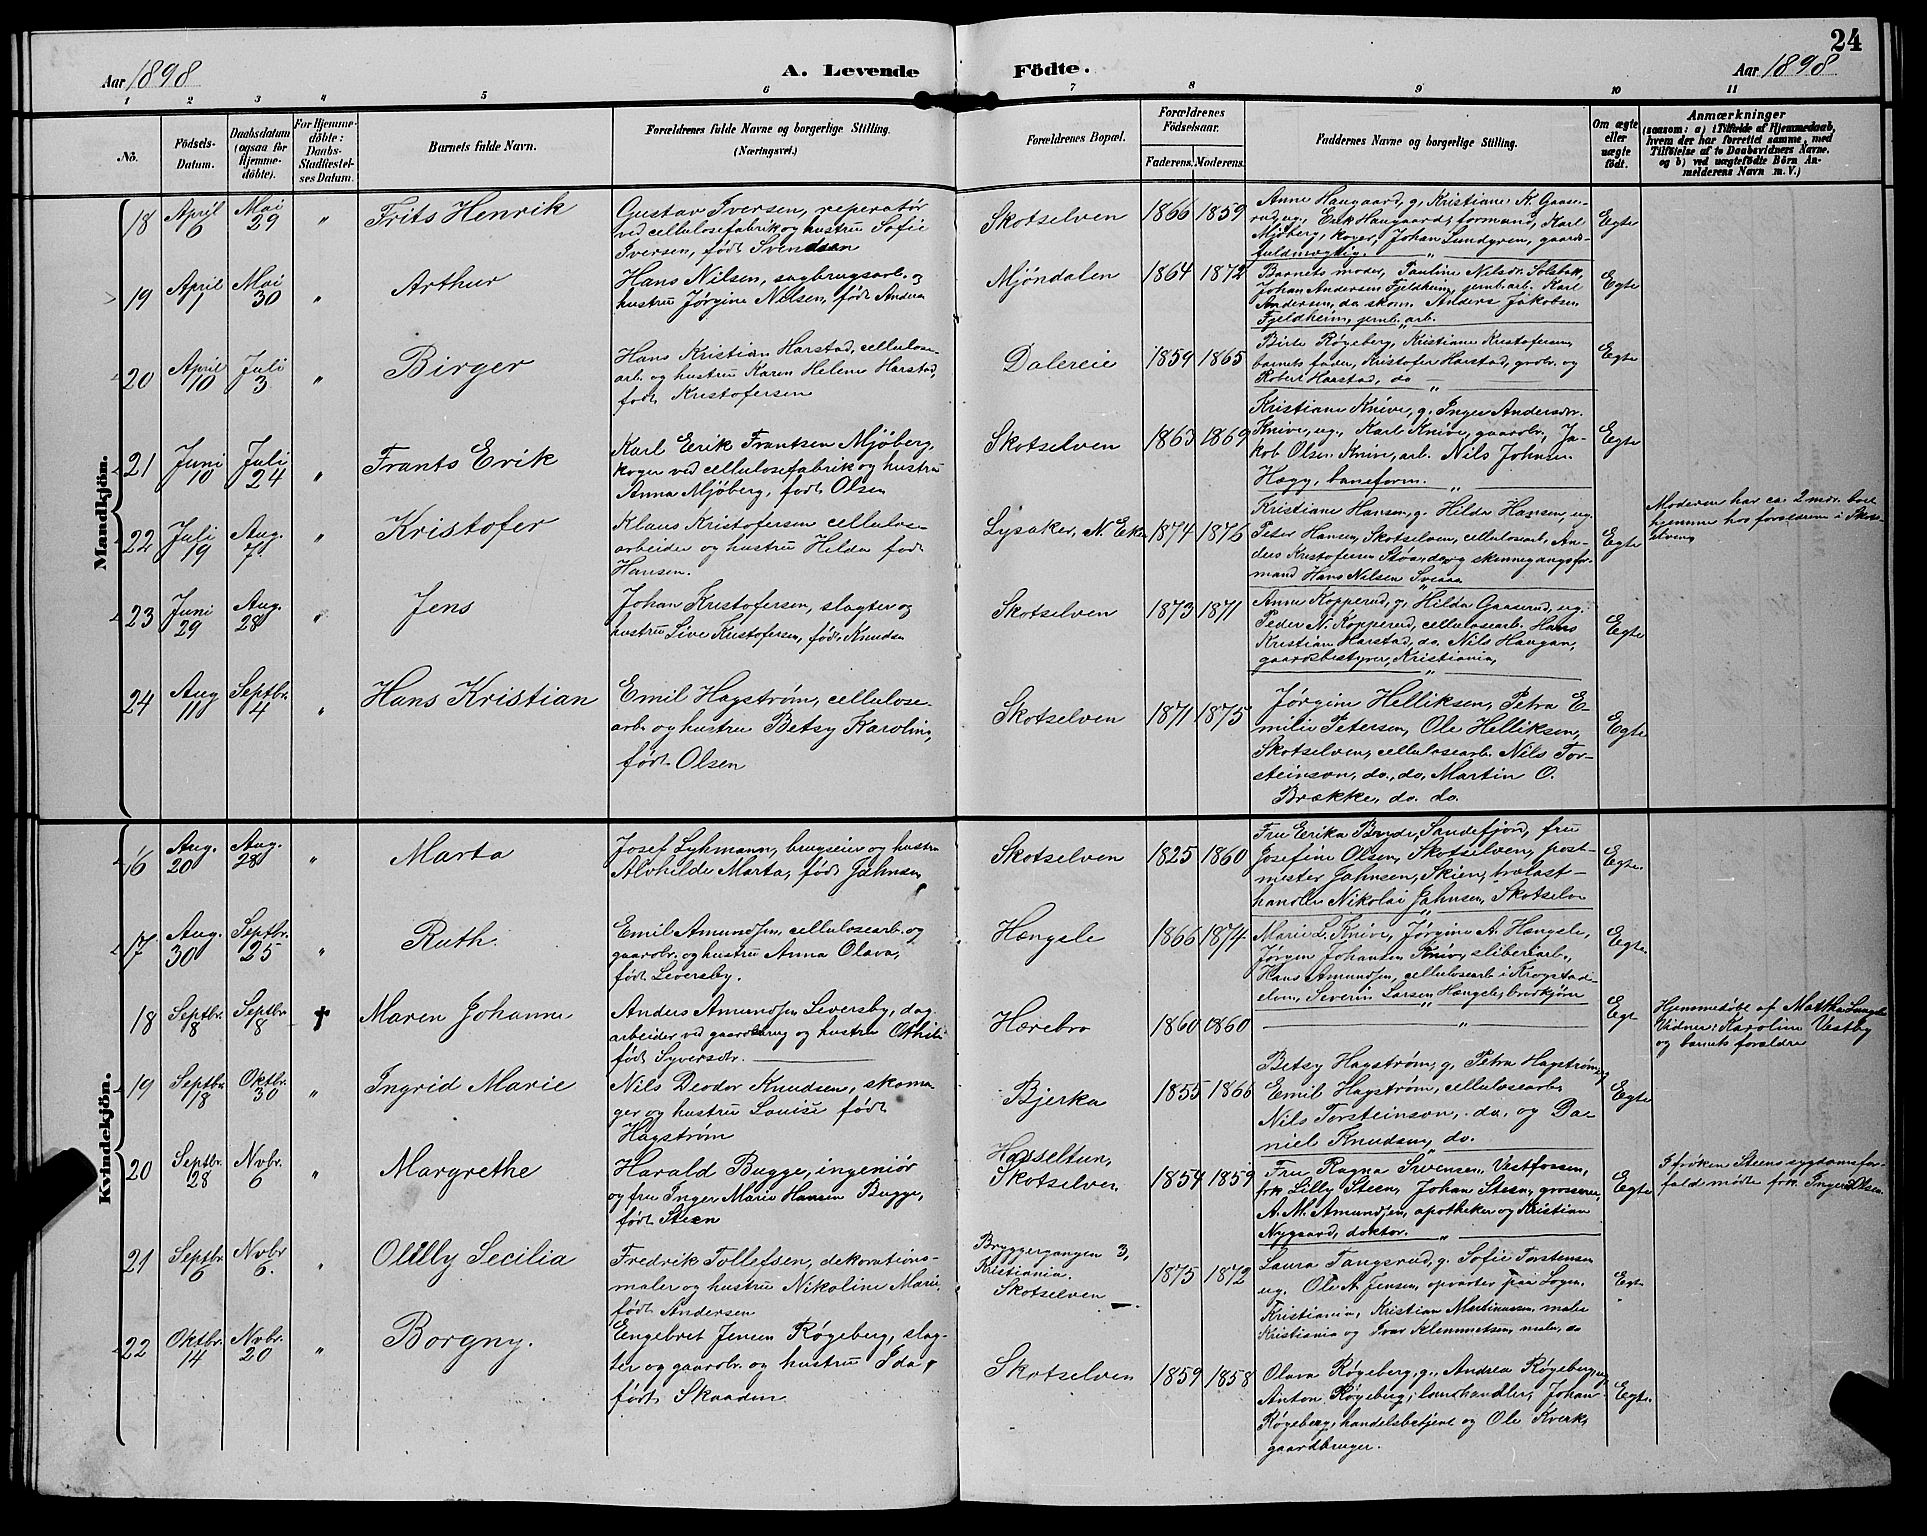 24
Aar 1898
A. Levende
Födte.
Aar 1898
1 2 3 4 5 6 7 8 9 10 11
No.
Födsels-Datum.
Daabsdatum (ogsaa for Hjemme-döbte).
For Hjemme-döbte: Daabs-Stadfæstelses Datum.
Barnets fulde Navn.
Forældrenes fulde Navne og borgerlige Stilling.
(Næringsvei.)
Forældrenes Bopæl.
Forældrenes Födselsaar.
Faderens. Moderens.
Faddernes Navne og borgerlige Stilling.
Om ægte eller uægte födt.
Anmærkninger
(saasom: a) i Tilfælde af Hjemmedaab, hvem der har forrettet samme, med Tilföielse af to Daabsvidners Navne, og b) ved uægtefödte Börn Anmelderens Navn m. V.)
Mandkjön.
18 April 6 Mai 29 " Frits Henrik
Gustav Iversen, reperatør
ved cellulosefabrik og hustru Sofie
Iversen, født Svendsen
Skotselven 1866 1859
Anne Haugaard, g, Kristiane K. Gaase-
rud, ug, Erik Haugaard, formand, Karl
Mjøberg, koger, Johan Lundgren, gaards-
fuldmægtig.
Egte
19 April 1 Mai 30 " Arthur
Hans Nilsen, sagbrugsarb. og
hustru Jørgine Nilsen, født Anders
Mjøndalen 1864 1872
Barnets moder, Pauline Nilsdr. Solbak,
Johan Andersen Fjeldheim, jernb.arb. Karl
Andersen, do skom. Anders Jakobsen
Fjeldheim, jernb. arb.
Egte
20 April 10 Juli 3 " Birger
Hans Kristian Harstad, cellulose-
arb. og hustru Karen Helene Harstad,
født Kristofersen
Dalereie 1859 1865
Birte Røgeberg, Kristiane Kristofersen,
barnets fader, Kristofer Harstad, gaardbr. og
Robert Harstad, do
Egte
21 Juni 10 Juli 24 " Frants Erik
Karl Erik Frantsen Mjøberg,
koger ved cellulosefabrik og hustru
Anna Mjøberg, født Olsen
Skotselven 1863 1869
Kristiane Knive, g, Inger Andersdr.
Knive, ug, Karl Knive, gaardbr, Ja-
kob Olsen Knive, arb. Nils Johnsen
Hagg, baneform.
Egte
22 Juli 19 Aug. 7 " Kristofer
Klaus Kristofersen cellulose-
arbeider og hustru Hilda født
Hansen.
Lysaker, N. Eker 1874 1876
Kristiane Hansen, g. Hilda Hansen, ug.
Peter Hansen, Skotselven, cellulosearb, An-
ders Kristofersen Støa, do og skinnegangsfor-
mand Hans Nilsen Sveaas
Egte
Moderen har ca. 2 mdr. boet
hjemme hos forældrene i Skot-
selven
23 Juni 29 Aug. 28 " Jens
Johan Kristofersen, slagter og
hustru Live Kristofersen, født Knudsen
Skotselven 1873 1871
Anne Kopperud, g, Hilda Gaaserud, ug.
Peder N. Kopperud, cellulosearb. Hans
Kristian Harstad, do. Nils Haugan,
gaardsbestyrer, Kristiania,
Egte
24 Aug 11 Septbr. 4 " Hans Kristian
Emil Hagstrøm, cellulose-
arb. og hustru Betsy Karoline,
født Olsen
Skotselven 1871 1875
Jørgine Helliksen, Petra E-
milie Petersen, Ole Helliksen,
Skotselven, cellulosearb. Nils Tor-
steinson, do., do, Martin O.
Brække, do. do.
Egte
Kvindekjön.
16 Aug. 20 Aug. 28 " Marta
Josef Lyhmann, brugseier og hustru
Alvhilde Marta, født Jahnsen
Skotselven 1825 1860
Fru Erika Bryde, Sandefjord, fru
Josefine Olsen, Skotselven, post-
mester Jahnsen, Skien, trælast-
handler Nikolai Jahnsen, Skotselv
Egte
17 Aug. 30 Septbr. 25 " Ruth
Emil Amundsen, cellulosearb. og
gaardbr. og hustru Anna Olava,
født Leversby.
Hængsle 1866 1874
Marie L. Knive, Jørgine A. Hængsle,
Jørgen Johansen Knive, sliberiarb.,
Hans Amundsen, cellulosearb i Krogstad-
elven, Severin Larsen Hængsle, brukjører
Egte
18 Septbr. 8 Septbr. 8 † Maren Johanne
Anders Amundsen Leversby, dag
arbeider ved gaardsbrug og hustru Othili
født Syversdr.
Hærebro 1860 1860
"
Egt
Hjemmedøbt af Mattha
Vidner: Karoline Vestby
og barnets forældre
19 Septbr. 18 Oktbr. 30 " Ingrid Marie
Nils Deodor Knudsen, skoma-
ger og hustru Louise født
Hagstrøm
Bjerka 1855 1866
Betsy Hagstrøm, g, Petra Hagstrøm, ug
Emil Hagstrøm, cellulosearb.
Nils Torsteinson, do, og Da-
niel Knudsen, do.
Egte
20 Septbr. 28 Nvbr. 6 " Margrethe
Harald Bugge, ingeniør
og fru Inger Marie Hansen Bugge,
født Steen
Hasseltun,
Skotselven. 1854 1859
Fru Ragna Svensen, Vestfossen,
frk. Lilly Steen, Johan Steen, grosserer,
A. M. Amundsen, apotheker og Kristian
Nygaard, doktor.
Egte
I frøken Steens sygdomsfor-
fald mødte frk. Inger Olsen
21 Septbr 6 Nvbr 6. " Olilly Secilia
Fredrik Tollefsen, dekorations-
maler og hustru Nikoline Marie,
født Andersen
Bryggergangen 3,
Kristiania.
Skotselven 1875 1872
Laura Tangsrud, g. Sofie Torstensen
ug. Ole A. Jensen, opvarter paa Logen,
Kristiania, Kristian Martinussen, maler
Kristiania og Ivar Klemmetsen, maler, do
Egte
22 Oktbr. 14 Nvbr. 20 " Borgny.
Engebret Jensen Røgeberg, slag-
ter og gaardbr. og hustru Ida,
født Skaaden
Skotselven 1859 1858
Olava Røgeberg, g, Andrea Røgeberg, ug
Anton Røgeberg, landhandler, Johan
Røgeberg, handelsbetjent og Ole Kverk,
gaardbruger.
Egte.